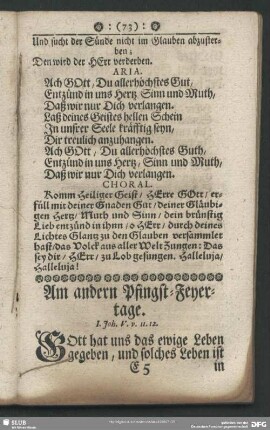 : (73) :
Und sucht der Sünde nicht im Glauben abzuster-
ben;
Den wird der HErr verderben.
ARIA.
Ach GOtt, Du allerhöchstes Gut,
Entzünd in uns Hertz, Sinn und Muth,
Daß wir nur Dich verlangen.
Laß deines Geistes hellen Schein
In unsrer Seele kräfftig seyn,
Dir treulich anzuhangen.
Ach GOtt / Du allerhöchstes Guth,
Entzünd in uns Hertz, Sinn und Muth,
Daß wir nur Dich verlangen.
CHORAL.
Komm Heiliger Geist / HErre GOtt / er-
füll mit deiner Gnaden Gut / deiner Gläubi-
gen Hertz / Muth und Sinn / dein brünstig
Lieb entzünd in ihm / o HErr / durch deines
Lichtes Glantz zu den Glauben versammlet
hast / das Volck aus aller Welt Zungen: Das
sey dir / HErr / zu Lob gesungen. Halleluja /
Halleluja!
Am andern Pfingst-Feyer-
tage.
I. Joh. V. v. 11. 12.
GOtt hat uns das ewige Leben
gegeben, und solches Leben ist
E 5 in
SLUB
DFG